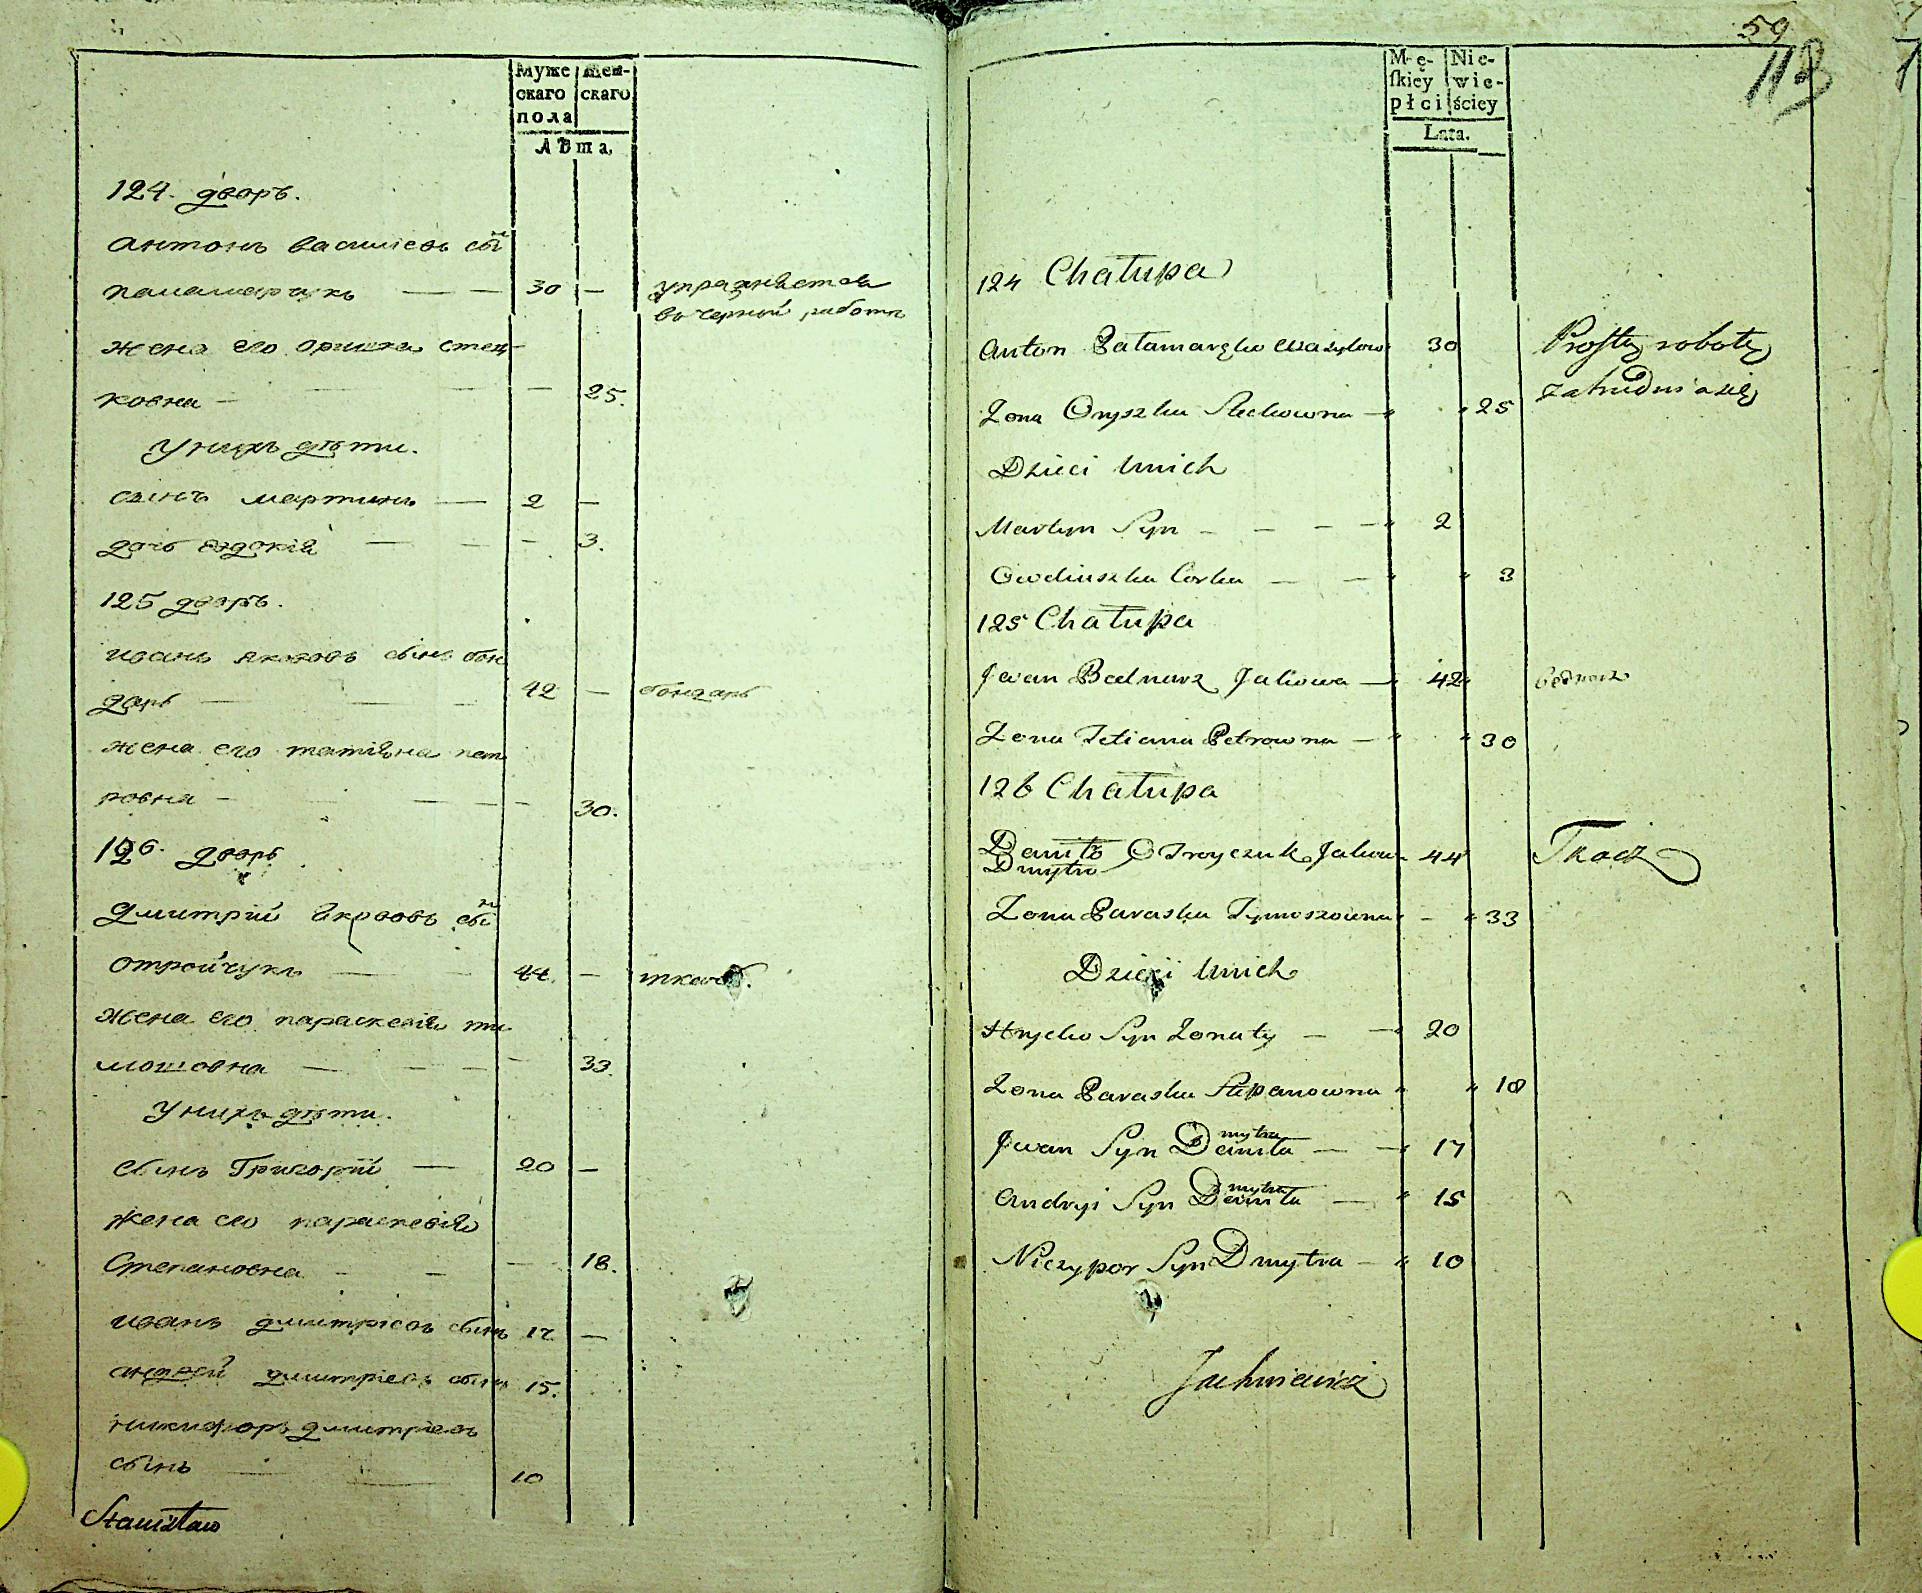 Муже
скаго
пола
Жен-
скаго
Лѣта,
124. дворъ.
Антонъ васильевъ сынъ
паламарчукъ — — 30 —
упражняется
въ черной работы
жена его оришка стец-
ковна — — — 25.
У нихъ дѣти.
сынъ мартинъ — 2 —
дочь евдокія — — — 3.
125 дворъ.
иванъ яковов сынъ бон
даръ — — — 42 — бондарь
жена его татіяна пет
ровна — — — — 30.
126. дворъ
Дмитрій Якововъ сынъ
отройчукъ — — 44. — ткачь.
жена его параскевія ти
мошовна — — — — 33.
У нихъ дѣти.
Сынъ Григорій — 20 —
жена его параскевія
Степановна — — — 18.
иванъ дмитріевъ сынъ 17 —
андрей дмитріевъ сынъ 15.
никифоръ дмитріевъ
сынъ — — 10
Stanisław
59
113
Mę-
skiey
płci
Nie-
wie-
ściey
Lata.
124 Chałupa
Anton Pałamarczko Wasylow 30 Prostą robotą
Zona Oryszka Steckowna — 25 zatrudnia się
Dzieci Unich
Martyn Syn — — — — 2
Owdiuszka Corka — — 3
125 Chałupa
Jwan Bednarz Jakowa — 42 bednarz
Zona Tetiana Petrowna — 30
126 Chałupa
Daniło Otroyczuk Jakow 44 Tkacz
Dmytro
Zona Paraska Tymoszowna — 33
Dzieci Unich
Hryćko Syn Zonaty — — 20
Zona Paraska Stepanowna 18
Jwan Syn Daniła mytra — — 17
Andryi Syn Daniła mytra — 15
Niczypor Syn Dmytra — 10
Jachniewicz